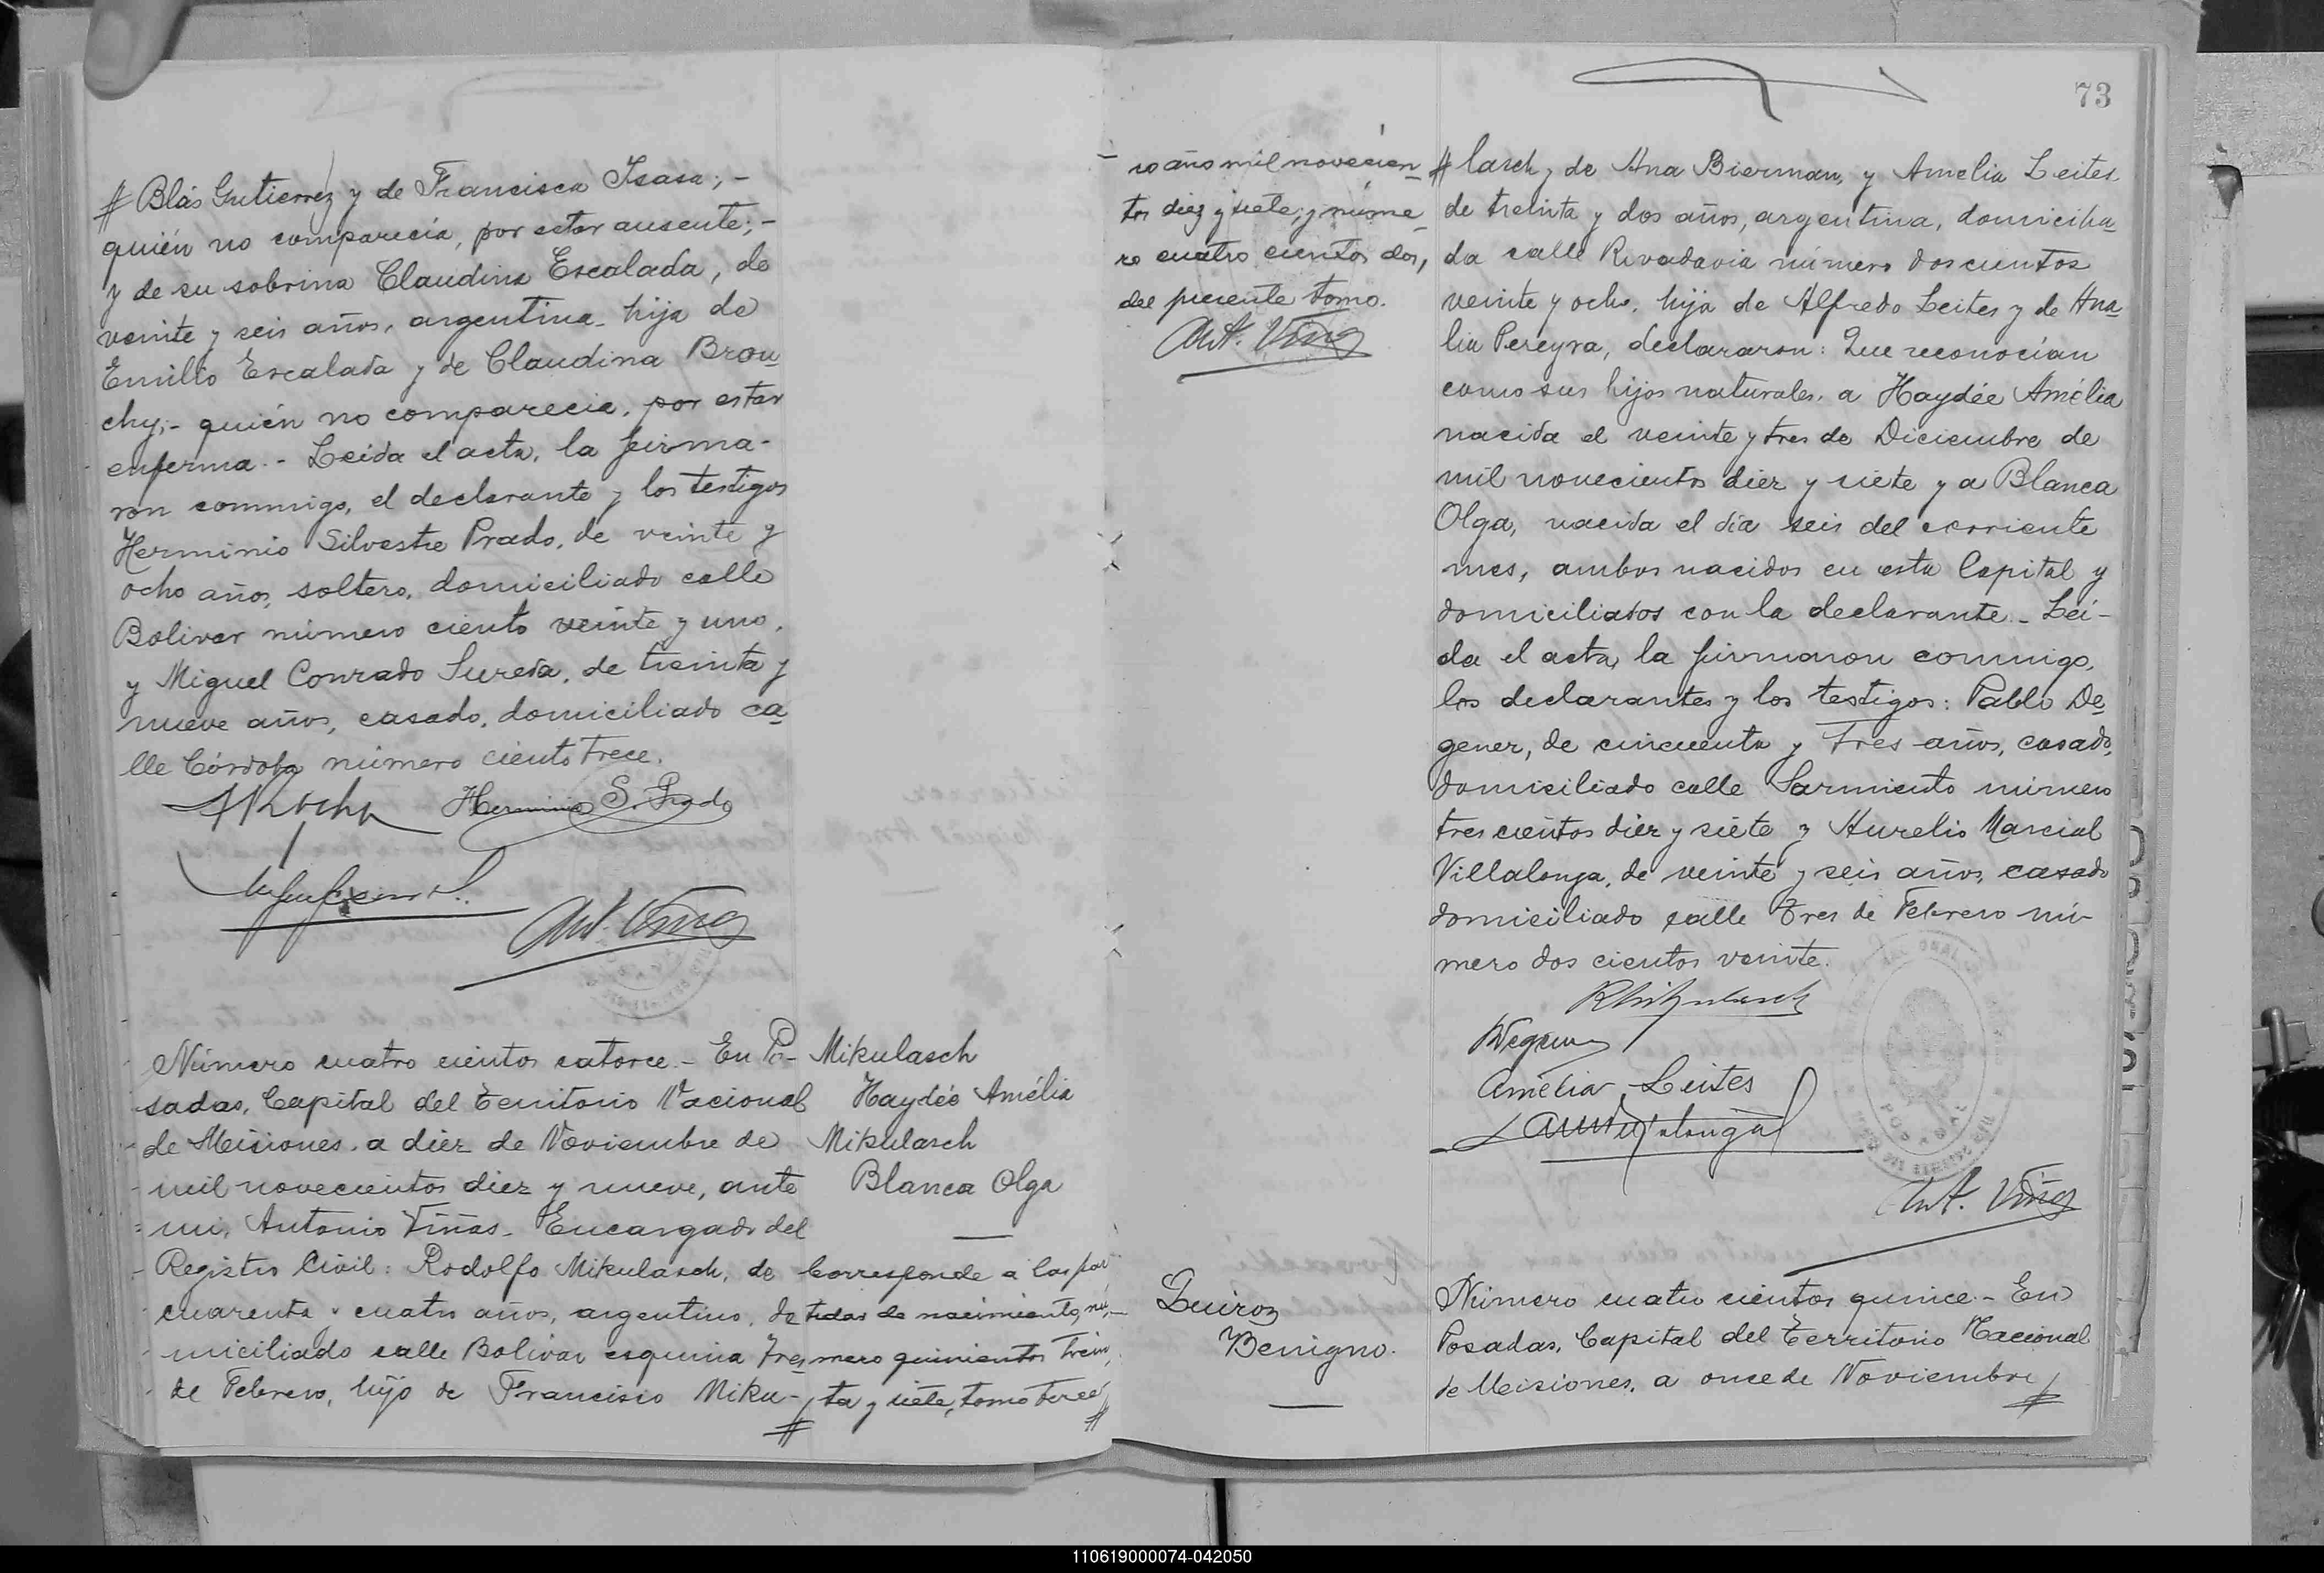 # Blás Gutierrez y de Francisca Isasa; -
quién no comparecía, por estar ausente; -
y de su sobrina Claudina Escalada, de
veinte y seis años, argentina, hija de
Emilio Escalada y de Claudina Brou
chy; - quién no comparecia, por estar
enferma. - Leida el acta, la firma-
ron conmigo, el declarante y los testigos
Herminio Silvestre Prado, de veinte y
ocho años, soltero, domiciliado calle
Bolivar número ciento veinte y uno,
y Miguel Conrado Sureda, de treinta y
nueve años, casado, domiciliado ca
lle Córdoba número ciento trece.
Herminio S. Prado
Ant. Viñas
Número cuatro cientos catorce. - En Po-
sadas, Capital del Territorio Nacional
de Misiones, a diez de Noviembre de
mil novecientos diez y nueve, ante
mi, Antonio Viñas - Encargado del
Registro Civil: Rodolfo Mikulasch, de
cuarenta y cuatro años, argentino, do
miciliado calle Bolivar esquina Tres
de Febrero, hijo de Francisco Miku- #
Mikulasch
Haydée Amélia
Mikulasch
Blanca Olga
Corresponde a las par
tidas de nacimiento, nú-
mero quinientos trein
ta y siete, tomo terce #
73
ro año mil novecien
tos diez y siete; y núme
ro cuatro cientos dos,
del presente tomo.
Ant. Viñas
# lasch y de Ana Bierman, y Amelia Leites
de treinta y dos años, argentina, domicilia
da calle Rivadavia número doscientos
veinte y ocho, hija de Alfredo Leites y de Ana
lia Pereyra, declararon: Que reconocían
como sus hijos naturales, a Haydée Amélia
nacida el veinte y tres de Diciembre de
mil novecientos diez y siete y a Blanca
Olga, nacida el día seis del corriente
mes, ambos nacidos en esta Capital y
domiciliados con la declarante. - Lei-
da el acta, la firmaron conmigo,
los declarantes y los testigos: Pablo De
gener, de cincuenta y tres años, casado,
domiciliado calle Sarmiento número
tres cientos diez y siete y Aurelio Marcial
Villalonga, de veinte y seis años, casado
domiciliado calle Tres de Febrero nú-
mero dos cientos veinte.
R Mikulasch
Amélia Leites
Ant. Viñas
Quiroz
Benigno.
Número cuatro cientos quince. - En
Posadas, Capital del Territorio Nacional
de Misiones, a once de Noviembre #
110619000074-042050